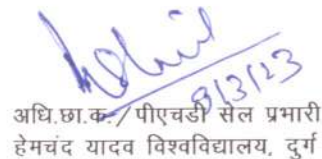 8/3/23
अधि.छा.क./पीएचडी सेल प्रभारी
हेमचंद यादव विश्वविद्यालय, दुर्ग